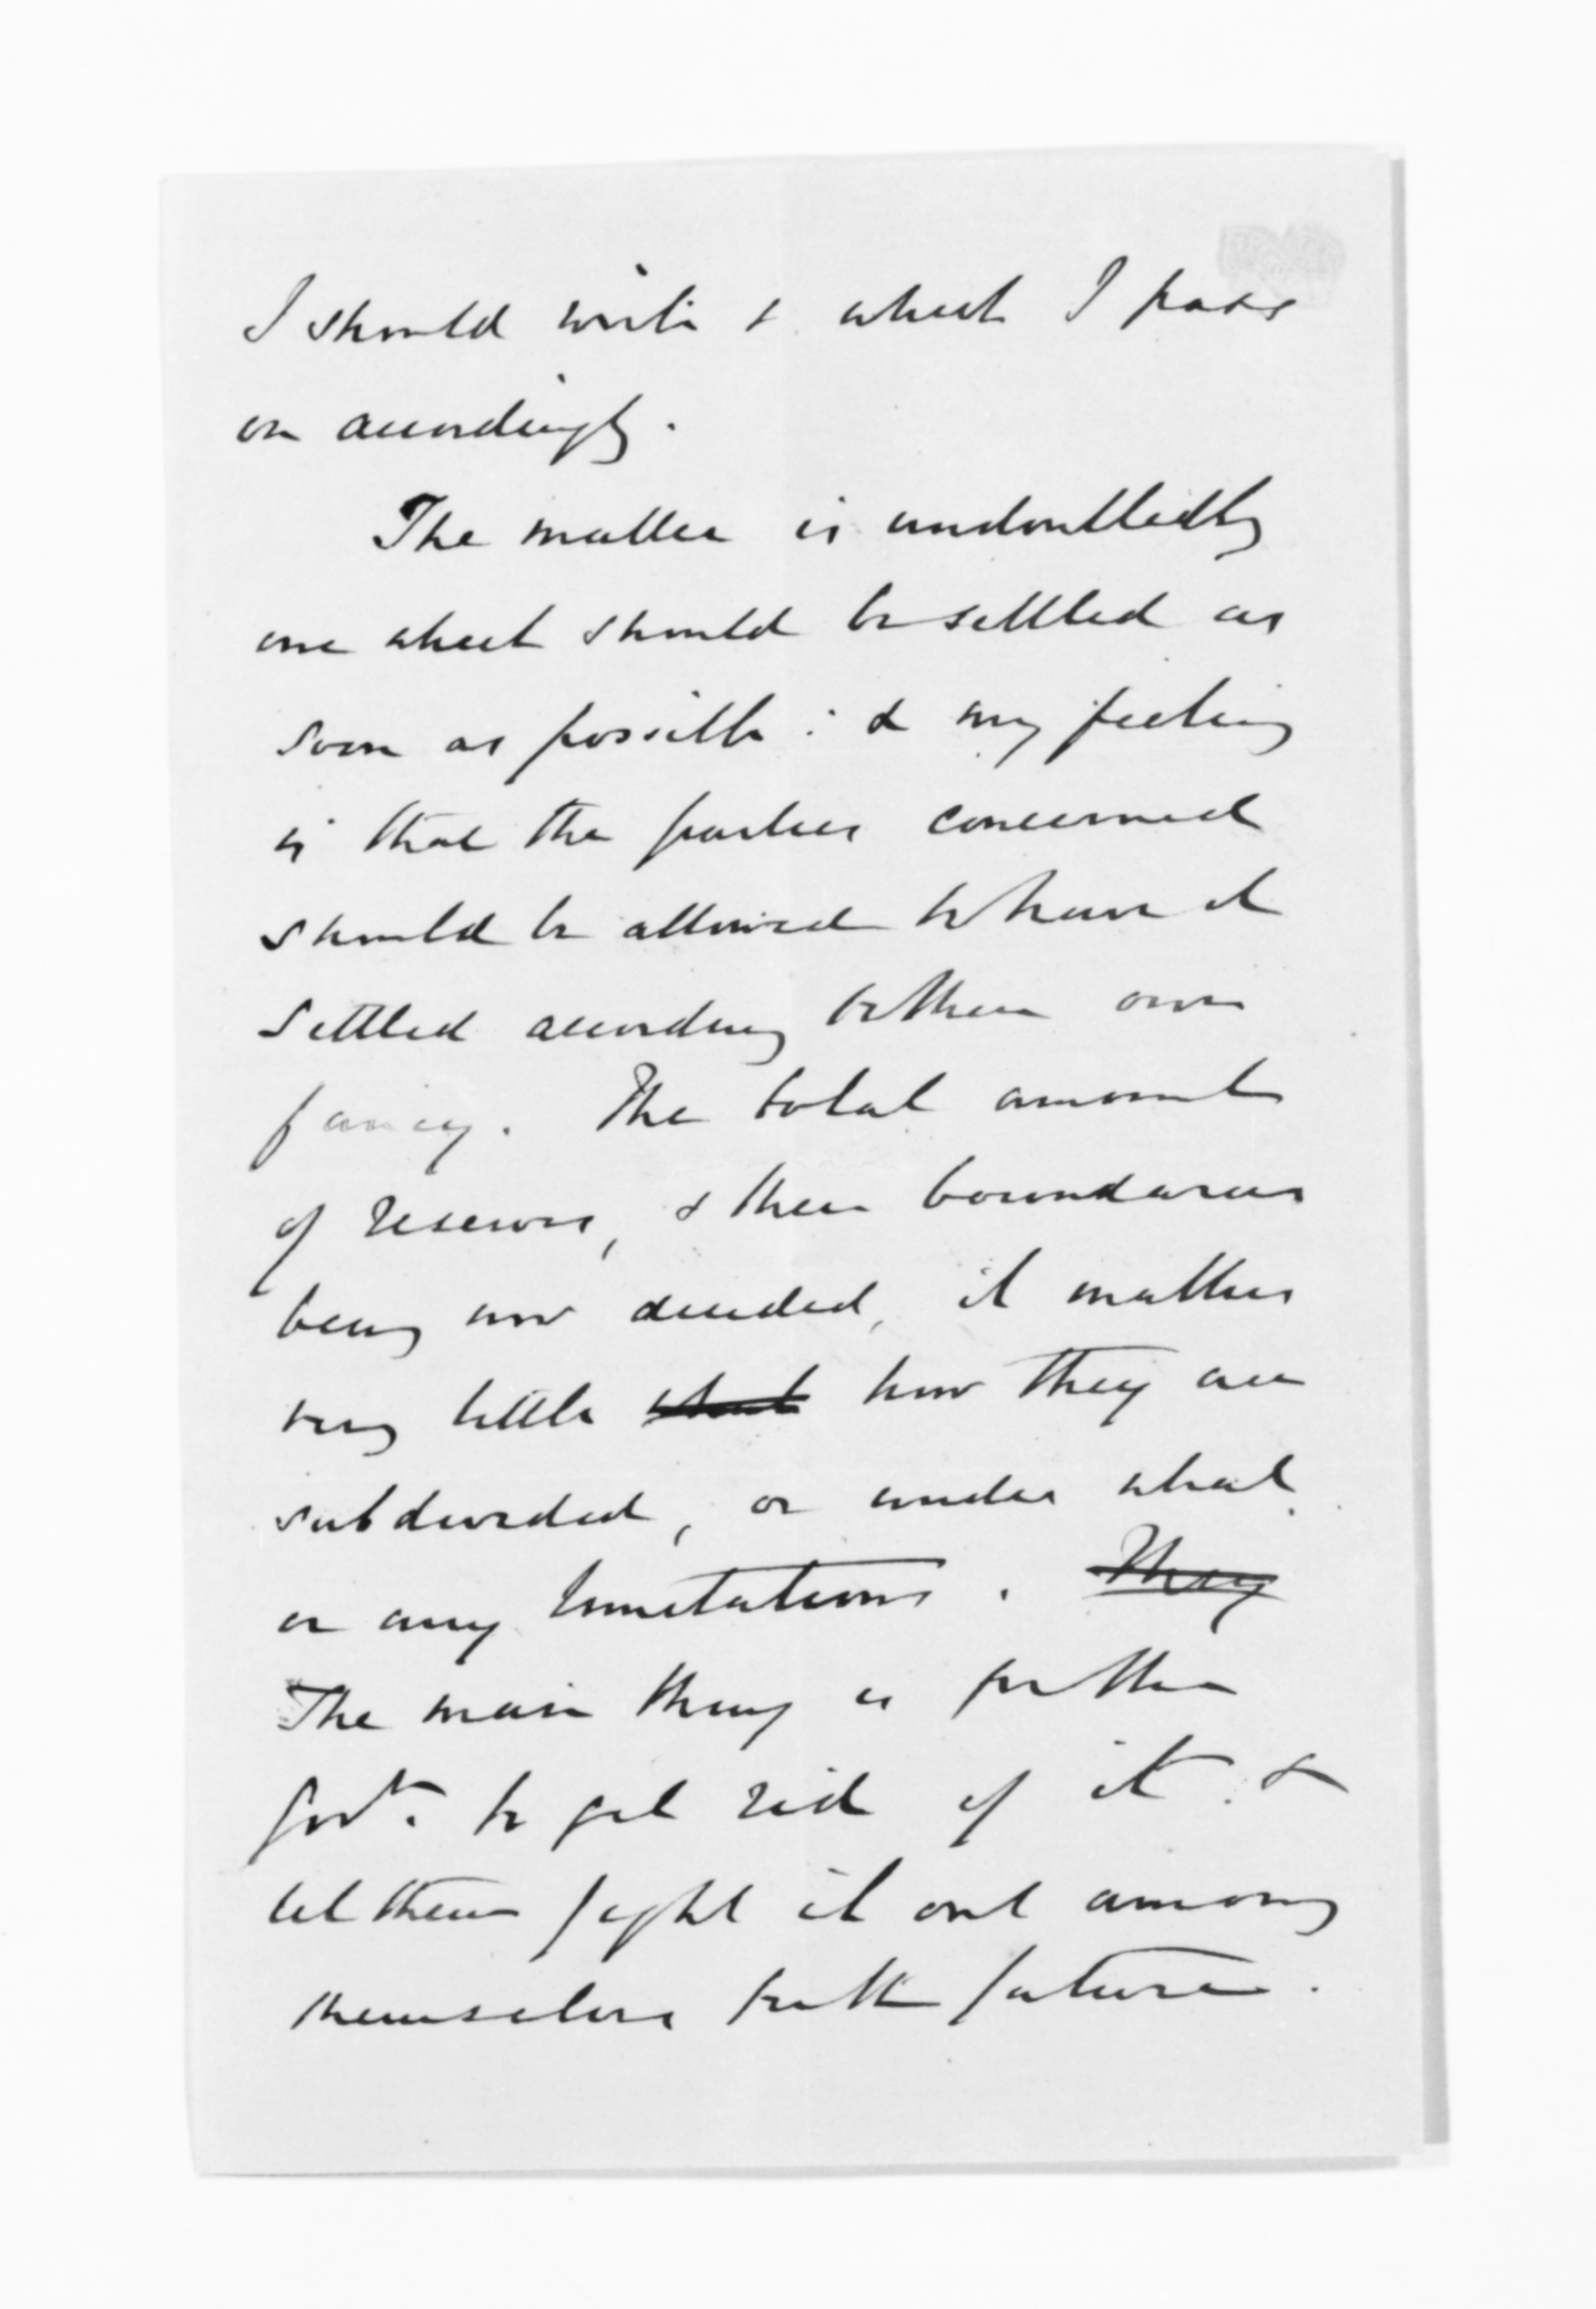 I should write & which I pass
on accordingly.
The matter is undoubtedly
one which should be settled as
soon as possible : & my feeling
is that the parties concerned
should be allowed to have it
settled according to their own
fancy. The total amount
of reserves, & their boundaries
being now decided, it matters
very little what how they are
subdivided, or under what
or any limitations. They
The main thing is for the
Govt. to get rid of it &
let them fight it out among
themselves for the future.